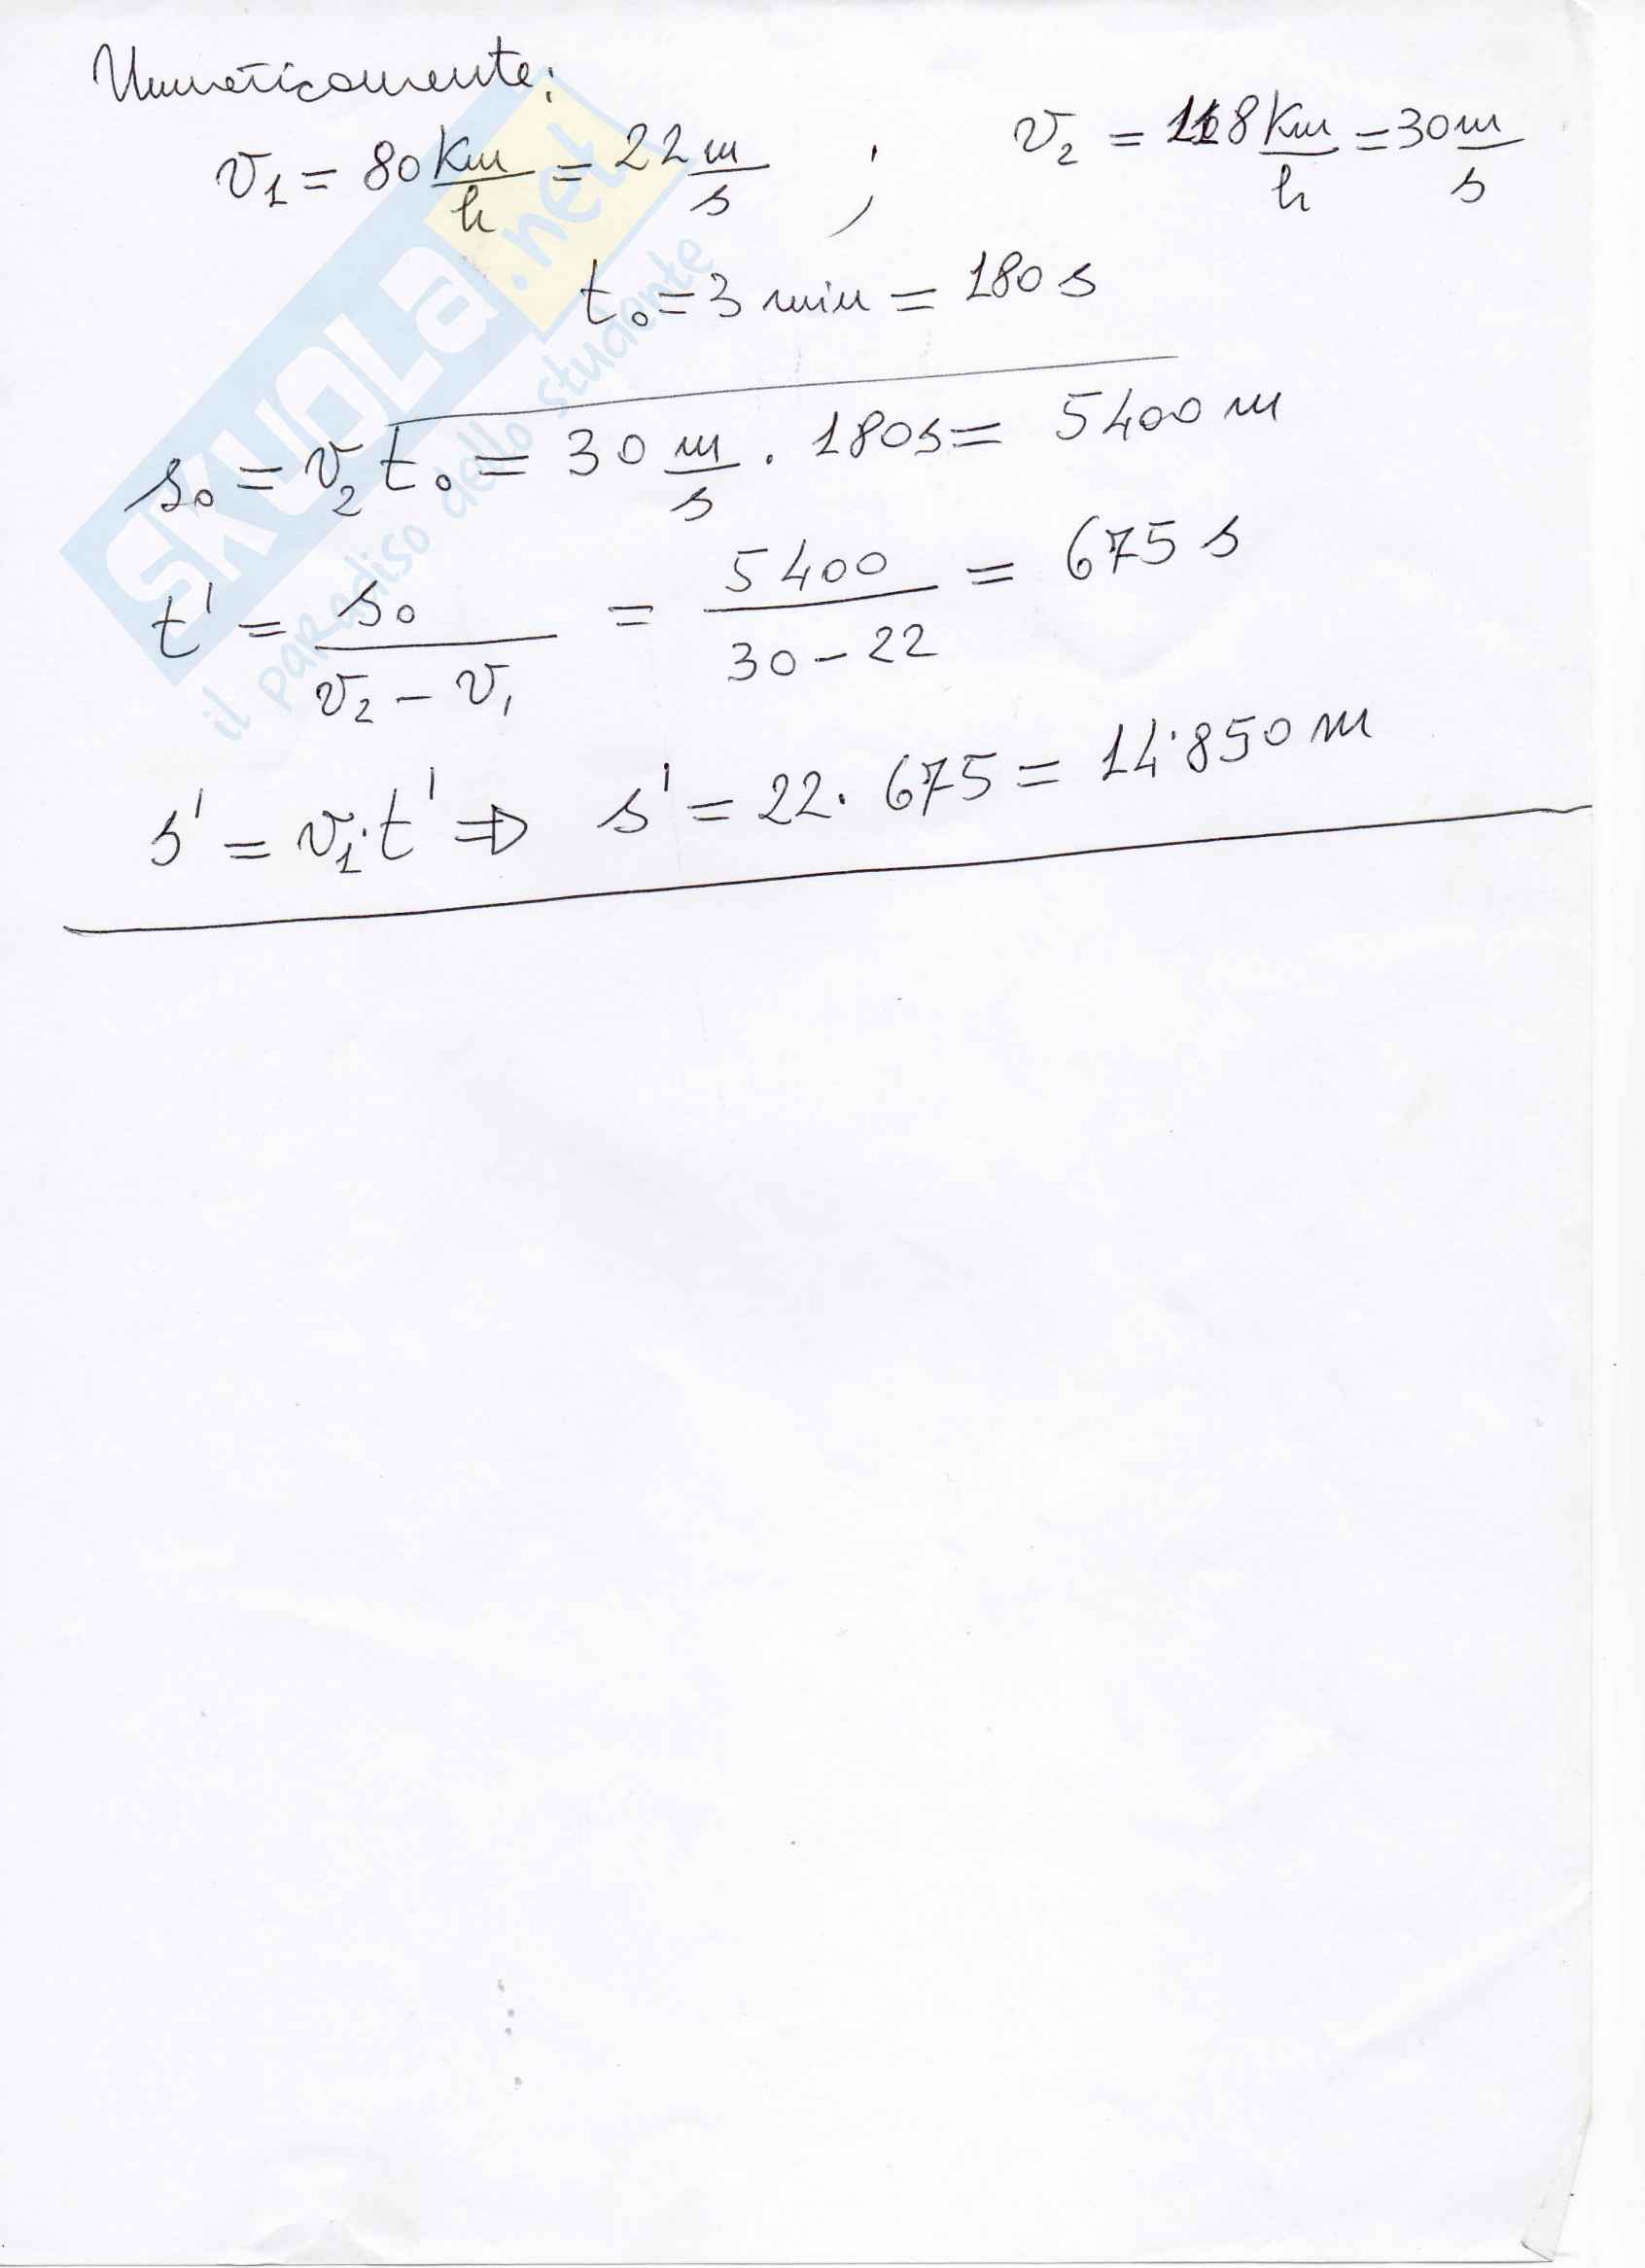 Numericamente:
v₁ = 80 Km/h = 22 m/s ; v₂ = 118 Km/h = 30 m/s
t₀ = 3 min = 180 s
s₀ = v₂ t₀ = 30 m/s · 180s = 5400 m
t' = s₀/(v₂ - v₁) = 5400/(30 - 22) = 675 s
s' = v₁·t' ⇒ s' = 22 · 675 = 14·850 m
SKUOLa.net
il paradiso dello studente